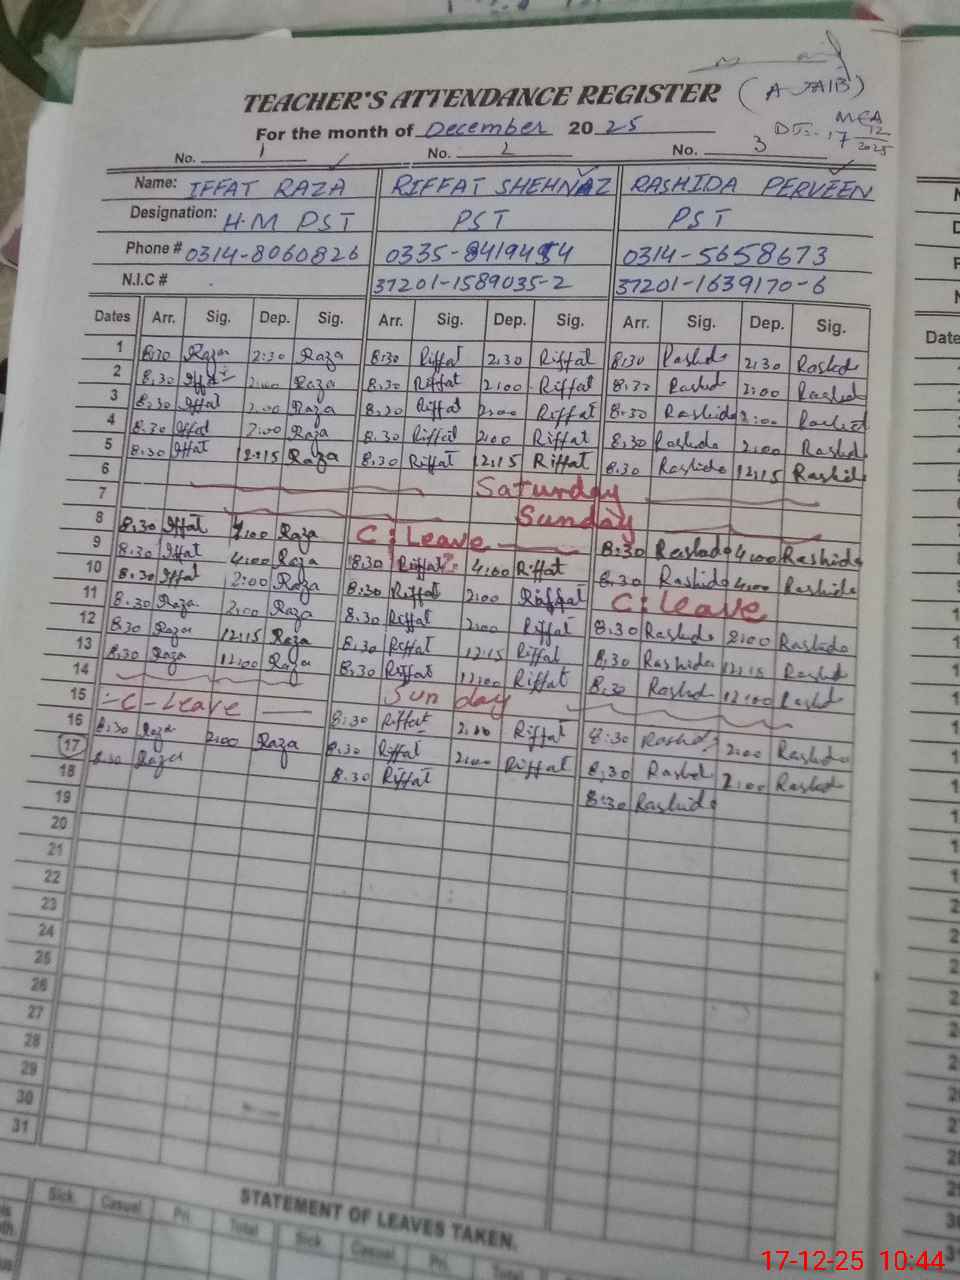 (AJAIB)
TEACHER'S ATTENDANCE REGISTER
MEA
For the month of December 2025
DT:- 17 12 2025
No. 1 No. 2 No. 3
Name: IFFAT RAZA RIFFAT SHEHNAZ RASHIDA PERVEEN
Designation: H.M PST PST PST
Phone # 0314-8060826 0335- 0314-5658673
N.I.C # 37201-1589035-2 37201-1639170-6
Dates Arr. Sig. Dep. Sig. Arr. Sig. Dep. Sig. Arr. Sig. Dep. Sig.
1 8:30 Raza 2:30 Raza 8:30 Riffat 2:30 Riffat 8:30 Rashda 2:30 Rashda
2 8:30 Iffat 2:00 Raza 8:30 Riffat 2:00 Riffat 8:30 Rashd 2:00 Rashd
3 8:30 Iffat 2:00 Raza 8:30 Riffat 2:00 Riffat 8:30 Rashida 2:00 Rashid
4 8:30 Iffat 2:00 Raza 8:30 Riffat 2:00 Riffat 8:30 Rashda 2:00 Rashd
5 8:30 Iffat 12:15 Raza 8:30 Riffat 12:15 Riffat 8:30 Rashida 12:15 Rashid
6 Saturday
7 Sunday
8 8:30 Iffat 4:00 Raza C:Leave 8:30 Rashad 4:00 Rashida
9 8:30 Iffat 4:00 Raza 8:30 Riffat 4:00 Riffat 8:30 Rashida 4:00 Rashida
10 8:30 Iffat 2:00 Raza 8:30 Riffat 2:00 Riffat C:Leave
11 8:30 Raza 2:00 Raza 8:30 Riffat 2:00 Riffat 8:30 Rashda 2:00 Rashida
12 8:30 Raza 12:15 Raza 8:30 Riffat 12:15 Riffat 8:30 Rashida 12:15 Rashd
13 8:30 Raza 12:00 Raza 8:30 Riffat 12:00 Riffat 8:30 Rashd 12:00 Rashd
14 Sunday
15 :-C-Leave 8:30 Riffat 2:00 Riffat 8:30 Rashd 2:00 Rashida
16 8:30 Raza 2:00 Raza 8:30 Riffat 2:00 Riffat 8:30 Rashd 2:00 Rashd
17 8:30 Raza 8:30 Riffat 8:30 Rashida
18
19
20
21
22
23
24
25
26
27
28
29
30
31
STATEMENT OF LEAVES TAKEN.
Sick Casual Pri. Total Sick Casual Pri. Total
17-12-25 10:44